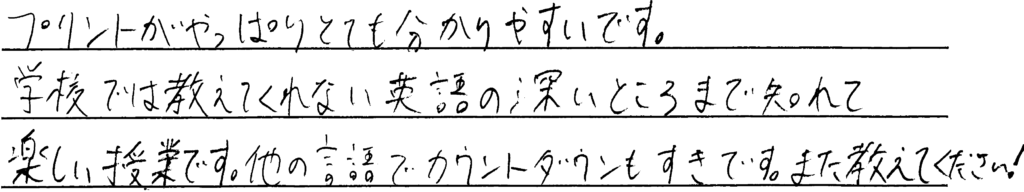 プリントがやっぱりとても分かりやすいです。
学校では教えてくれない英語の深いところまで知れて
楽しい授業です。他の言語でカウントダウンもすきです。また教えてください!